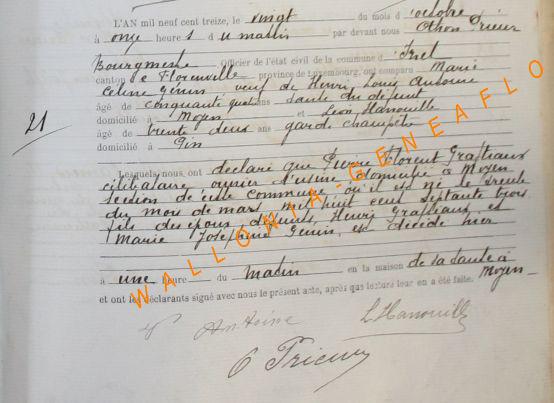 L'AN mil neuf cent treize, le vingt du mois d'octobre
à onze heures du matin par devant nous Othon Prieur
Bourgmestre Officier de l'état civil de la commune d'Izel
canton de Florenville province de Luxembourg, ont comparu Marie
Céline Genin veuf de Henri Louis Antoine
âgé de cinquante quatre ans tante du défunt
domicilié à Moyen et Léon Hanouille
âgé de trente deux ans garde champêtre
domicilié à Pin
21
Lesquels nous ont déclaré que Pierre Florent Grafteaux
célibataire ouvrier d'usine domicilié à Moyen
section de cette commune où il est né le trente
du mois de mars mil huit cent septante trois
fils des époux défunts, Henri Grafteaux et
Marie Joséphine Genin, est décédé hier
à une heure du matin en la maison de sa tante à
Moyen
et ont les déclarants signé avec nous le présent acte, après que lecture leur en a été faite.
WALLONIA-GENEAFLO
Antoine L Hanouille
O Prieur